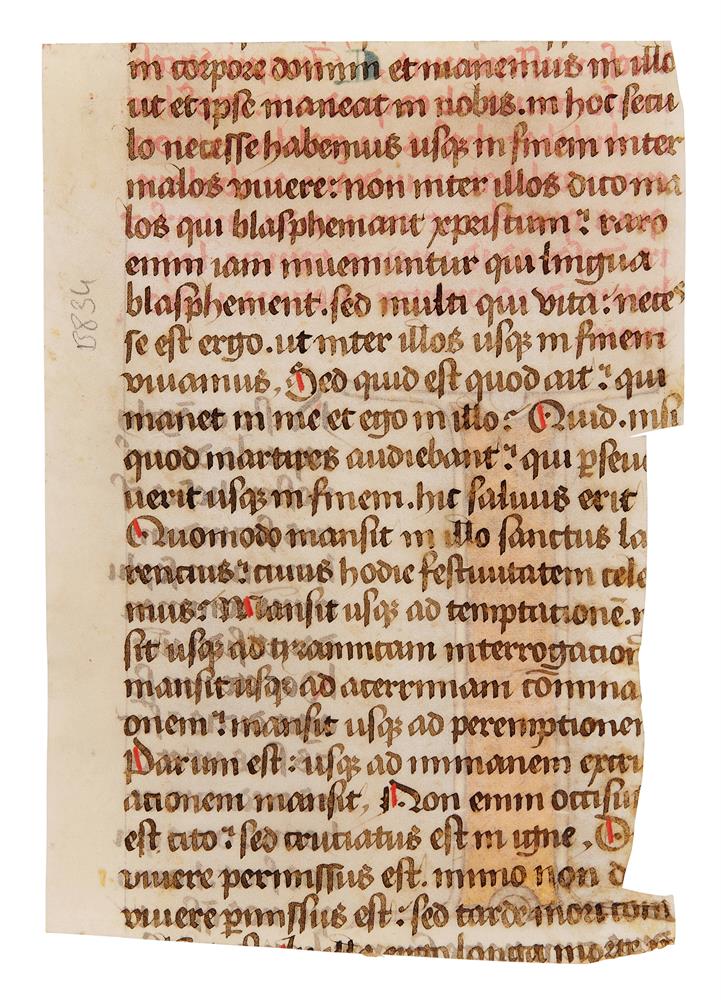 in corpore domini et manemus in illo
ut et ipse maneat in nobis. in hoc secu
lo necesse habemus usqꝫ in finem inter
malos vivere: non inter illos dico ma
los qui blasphemant xpristum? raro
enim iam inveniuntur qui lingua
blasphement. sed multi qui vita: neces
se est ergo. ut inter illos usqꝫ in finem
vivamus, Sed quid est quod ait? qui
manet in me et ego in illo? Quid. nisi
quod martires audiebant? qui ꝑseve
verit usqꝫ in finem. hic salvus erit
Quomodo mansit in illo sanctus la
rencius? cuius hodie festivitatem cele
mus? Mansit usqꝫ ad temptationē.
sit usqꝫ ad tirannicam interrogacion
mansit usqꝫ ad acerrimam cōmina
onem? mansit usqꝫ ad peremptionem
Parum est: usqꝫ ad immanem excru
ationem mansit, Non enim occisus
est cito? sed cruciatus est in igne, D
vivere permissus est. immo non d
vivere ꝑmissus est: sed tarde mori
ergo longa morte
B834